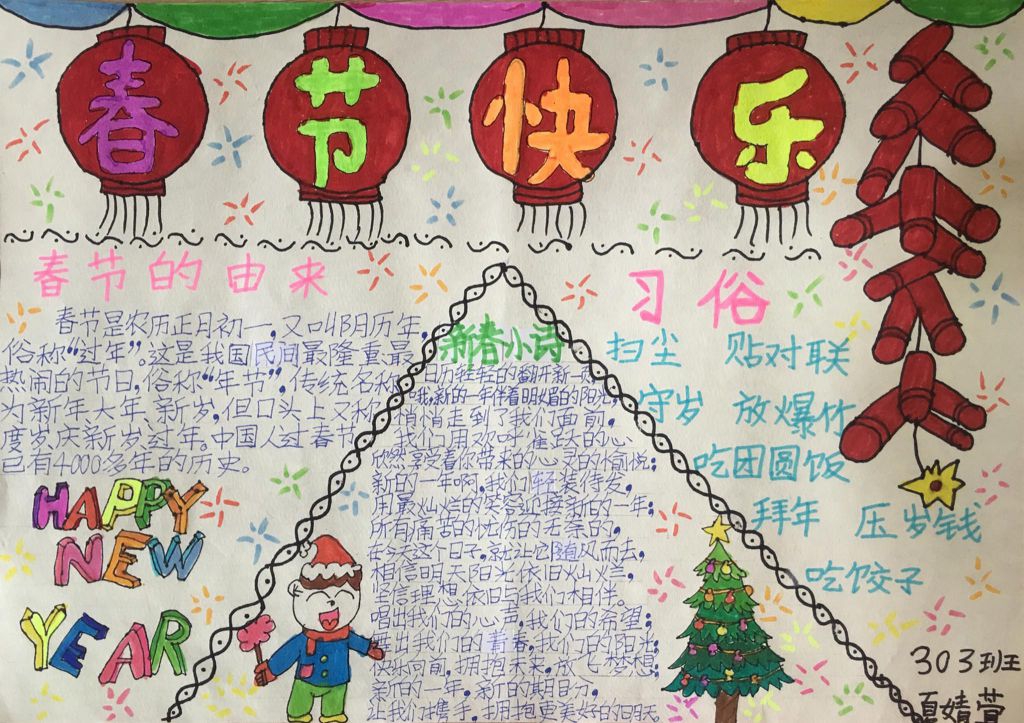 春节快乐
春节的由来
春节是农历正月初一,又叫阴历年,
俗称“过年”。这是我国民间最隆重、最
热闹的节日,俗称“年节”,传统名称
为新年、大年、新岁,但口头上又称
度岁、庆新岁、过年。中国人过春节
已有4000多年的历史。
HAPPY
NEW
YEAR
新春小诗
日历轻轻的翻开新一页
哦,新的一年伴着明媚的阳光
悄悄走到了我们面前,
我们用欢呼雀跃的心
依然享受着你带来的心灵的愉悦;
新的一年啊,我们轻装待发,
用最灿烂的笑容迎接新的一年;
所有痛苦的忧伤的无奈的,
在今天这个日子,就让它随风而去,
相信明天阳光依旧灿烂,
坚信理想,依旧与我们相伴。
唱出我们的心声,我们的希望;
舞出我们的青春,我们的阳光;
快乐向前,拥抱未来,放飞梦想;
新的一年,新的期盼,
让我们携手,拥抱更美好的明天。
习俗
扫尘 贴对联
守岁 放爆竹
吃团圆饭
拜年 压岁钱
吃饺子
303班
夏婧萱